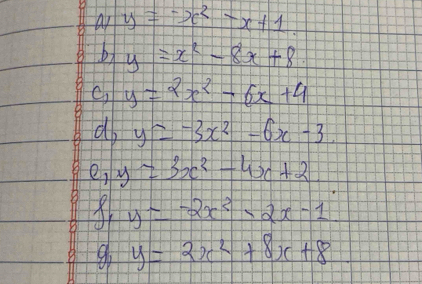 a, y = -x² - x + 1.
b, y = x² - 8x + 8.
c, y = 2x² - 6x + 4
d, y = -3x² - 6x - 3.
e, y = 3x² - 4x + 2.
f, y = -2x² - 2x - 1.
g, y = 2x² + 8x + 8.